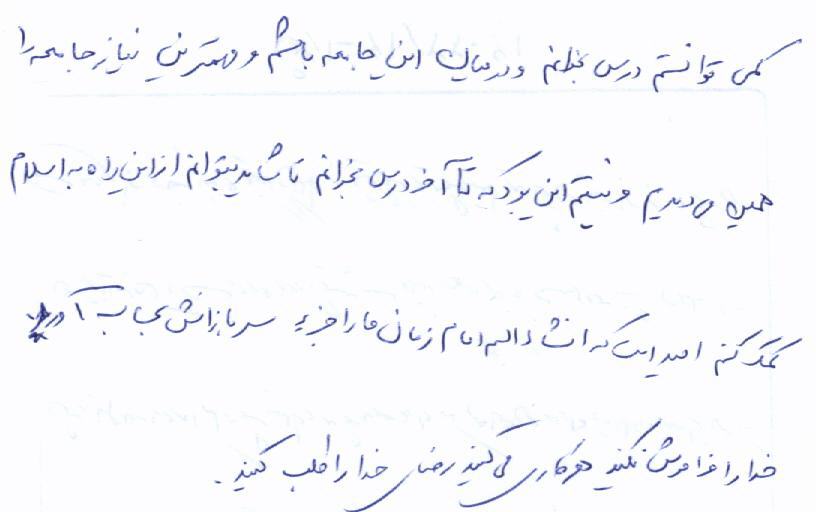 کمی توانستم درس بخوانم و درمیان این جامعه باشم و مهمترین نیاز جامعه را
همین می دیدم و نیتم این بود که تا آخر درس بخوانم تا شاید بتوانم از این راه به اسلام
کمک کنم امید است که انشاءالله امام زمان ما را جزء سربازانش بحساب آورد
خدا را فراموش نکنید هر کاری می کنید رضای خدا را طلب کنید.